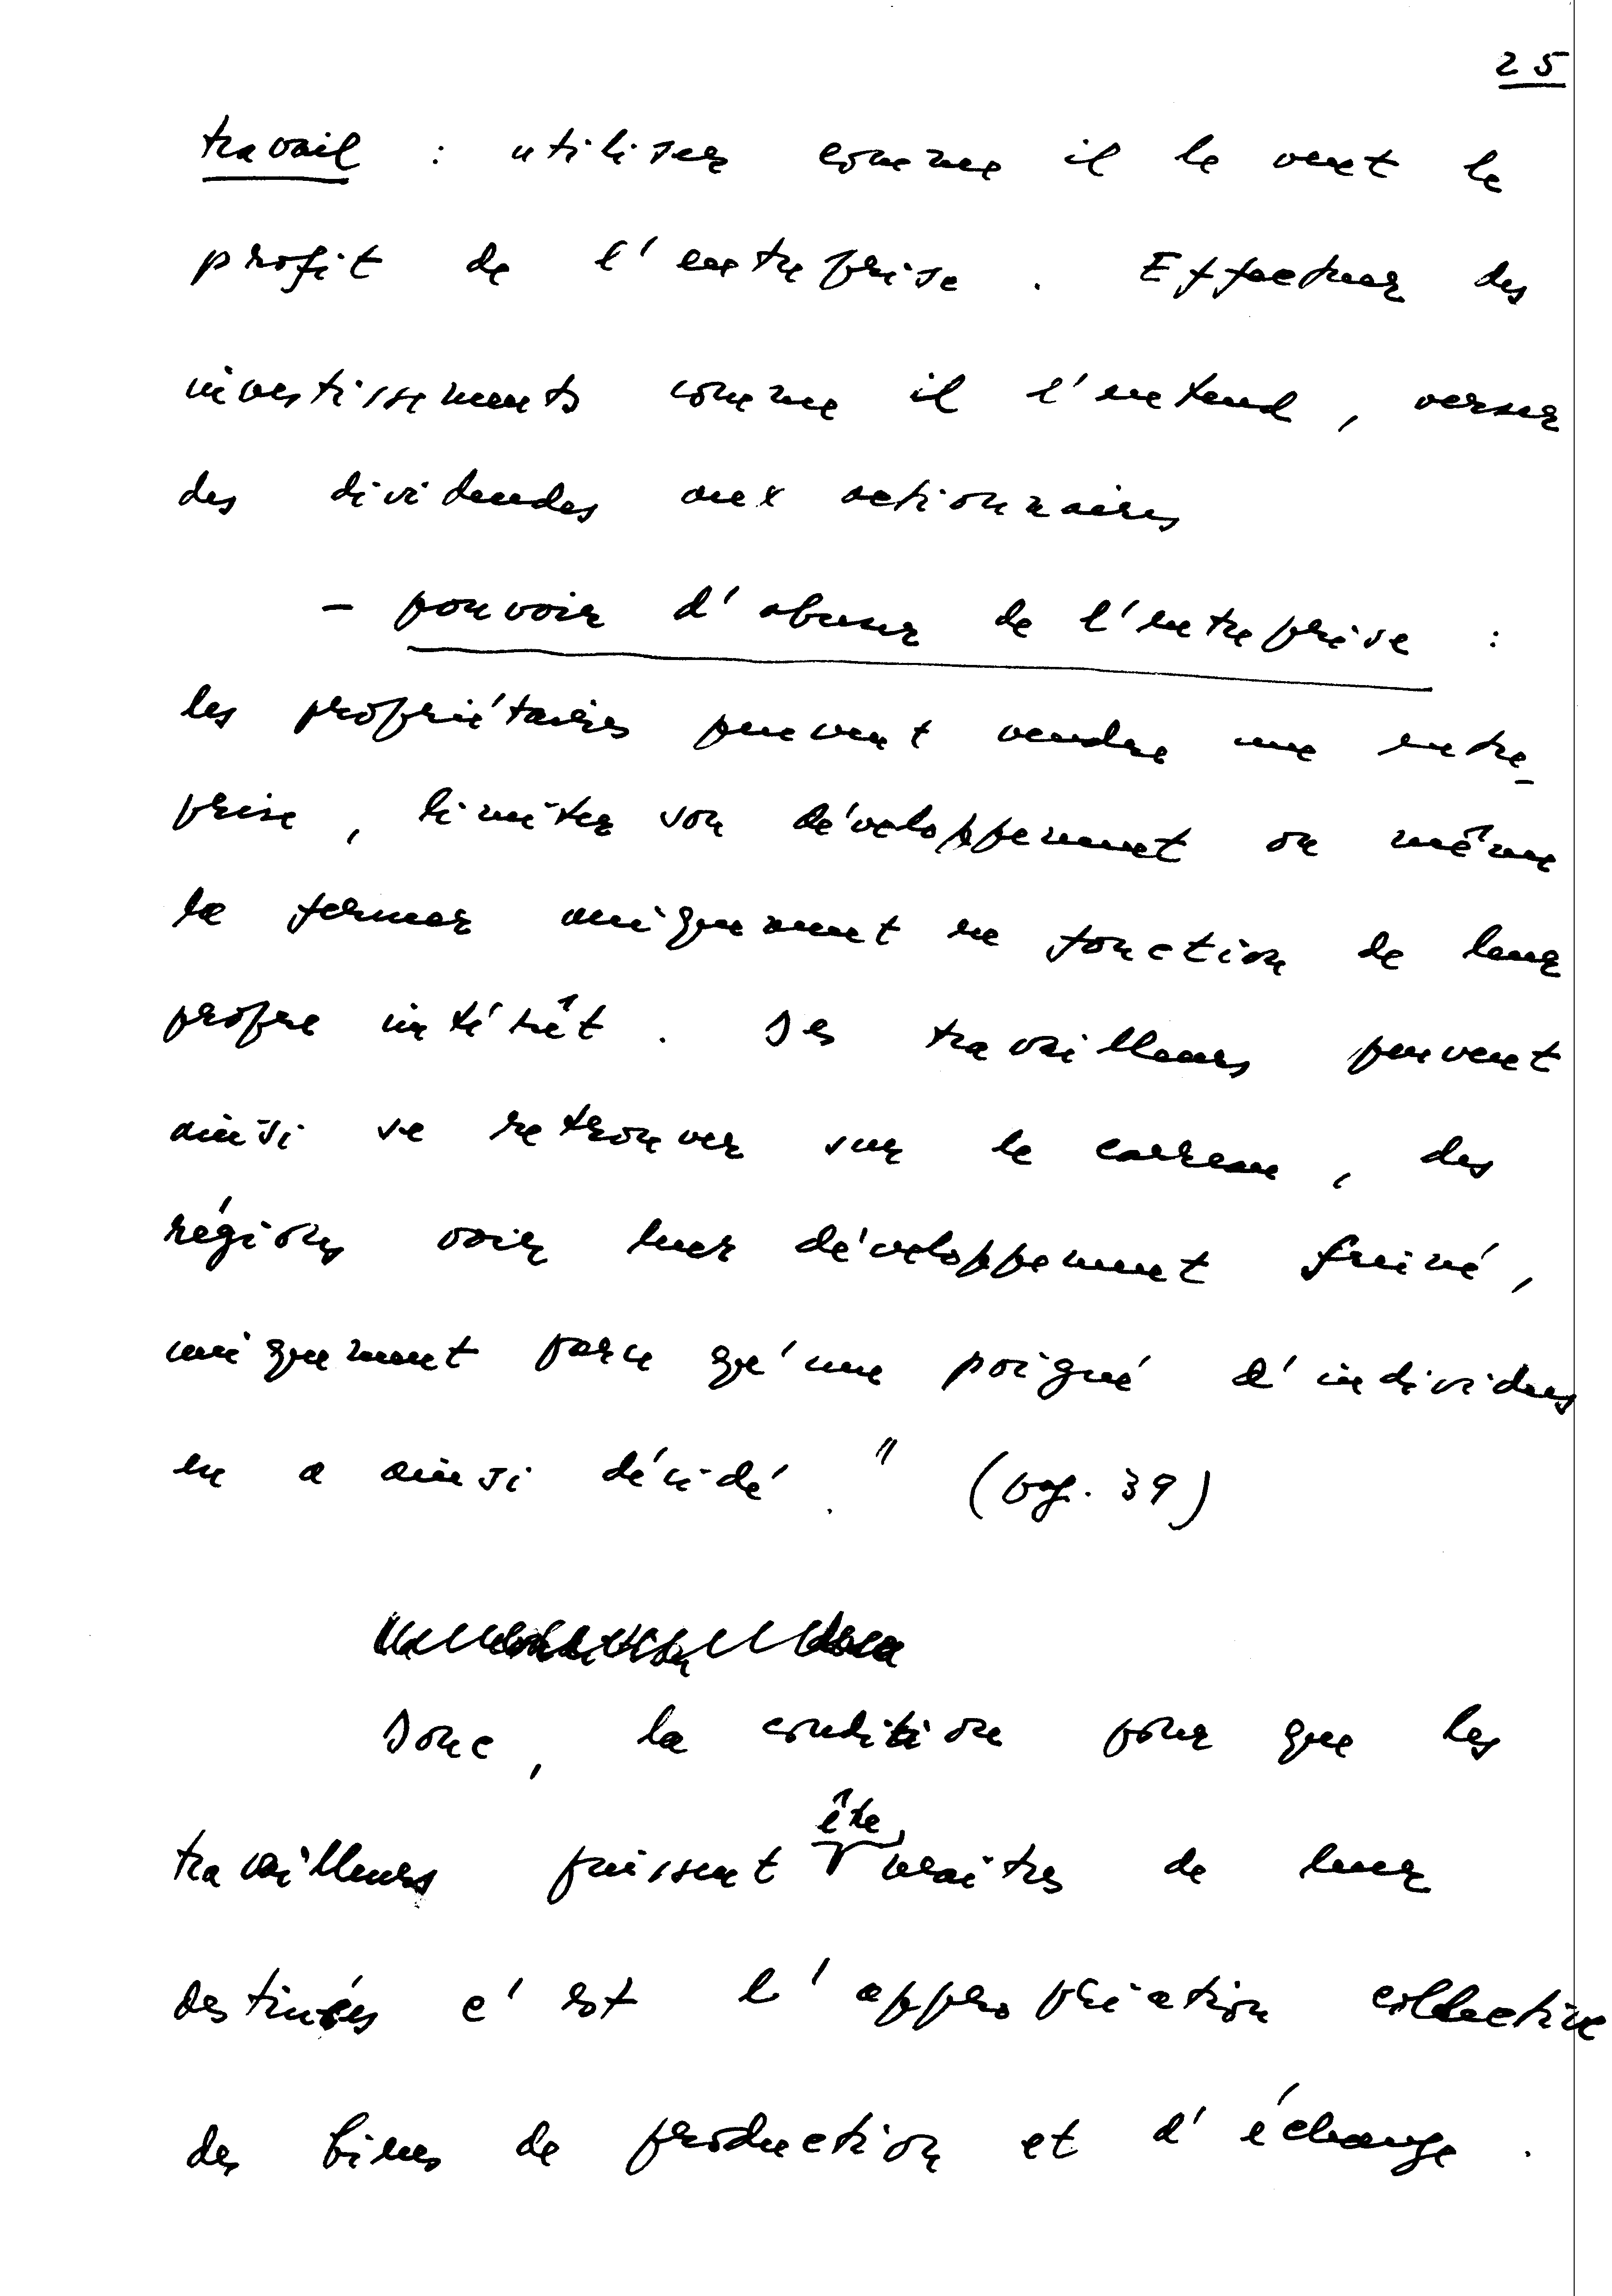 25
travail : utiliser comme il le veut le
profit de l'entreprise. Effectuer des
investissements comme il l'entend, verser
des dividendes aux actionnaires
- pouvoir d'abuser de l'entreprise :
les propriétaires peuvent vendre une entre-
prise, limiter son développement ou même
la fermer uniquement en fonction de leur
propre intérêt. Des travailleurs peuvent
ainsi se retrouver sur le carreau, des
régions voir leur développement freiné,
uniquement parce qu'une poigné d'individus
en a ainsi décidé." (pag. 39)
Donc, la condition pour que les
être
travailleurs puissent maitres de leur
destinées c'est l'appropriation collective
des biens de production et d'échange.